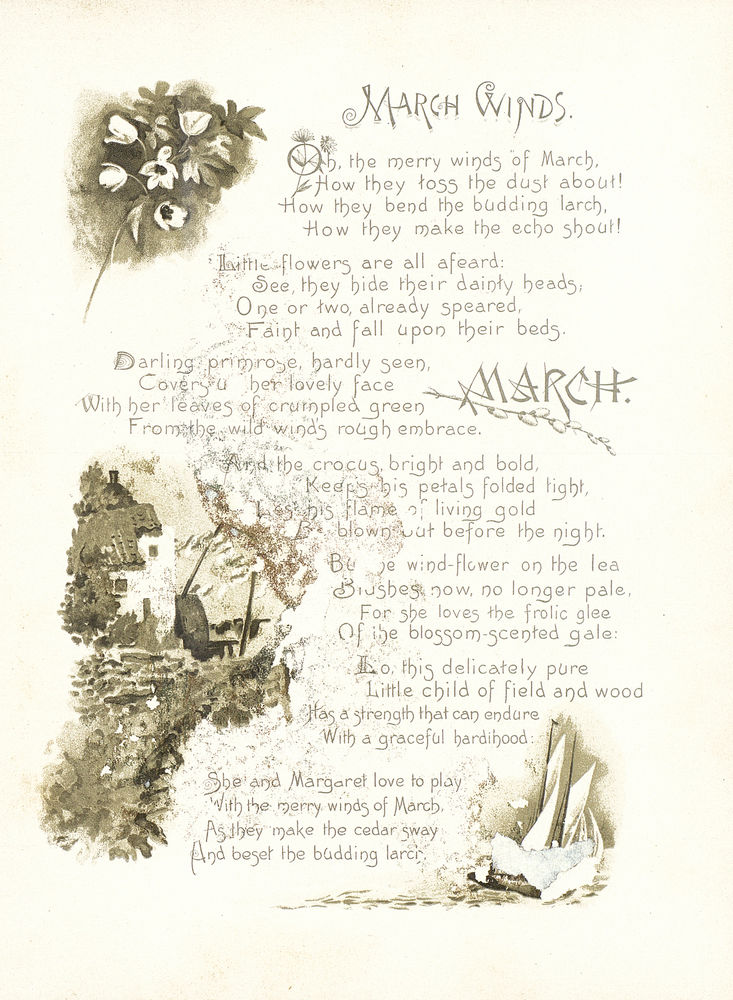 MARCH WINDS.
Oh, the merry winds of March,
How they toss the dust about!
How they bend the budding larch,
How they make the echo shout!
Little flowers are all afeard:
See, they hide their dainty heads;
One or two, already speared,
Faint and fall upon their beds.
Darling primrose, hardly seen,
Covers u her lovely face
With her leaves of crumpled green
From the wild wind's rough embrace.
MARCH.
And the crocus, bright and bold,
Keeps his petals folded tight,
his flame of living gold
Be blown out before the night.
wind-flower on the lea
Blushes now, no longer pale,
For she loves the frolic glee
Of the blossom-scented gale:
Lo, this delicately pure
Little child of field and wood
Has a strength that can endure
With a graceful hardihood:
She and Margaret love to play
With the merry winds of March,
As they make the cedar sway
And beset the budding larch.